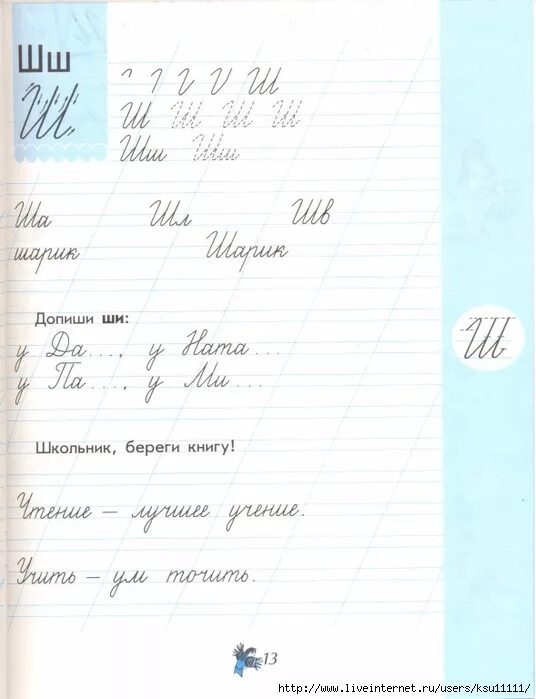 Шш
Ш
Ш
Ш Ш Ш Ш
Шш Шш
Ша Шл Шв
шарик Шарик
Допиши ши:
у Да..., у Ната...
у Па..., у Ми...
Ш
Школьник, береги книгу!
Чтение – лучшее учение.
Учить – ум точить.
13
http://www.liveinternet.ru/users/ksu11111/